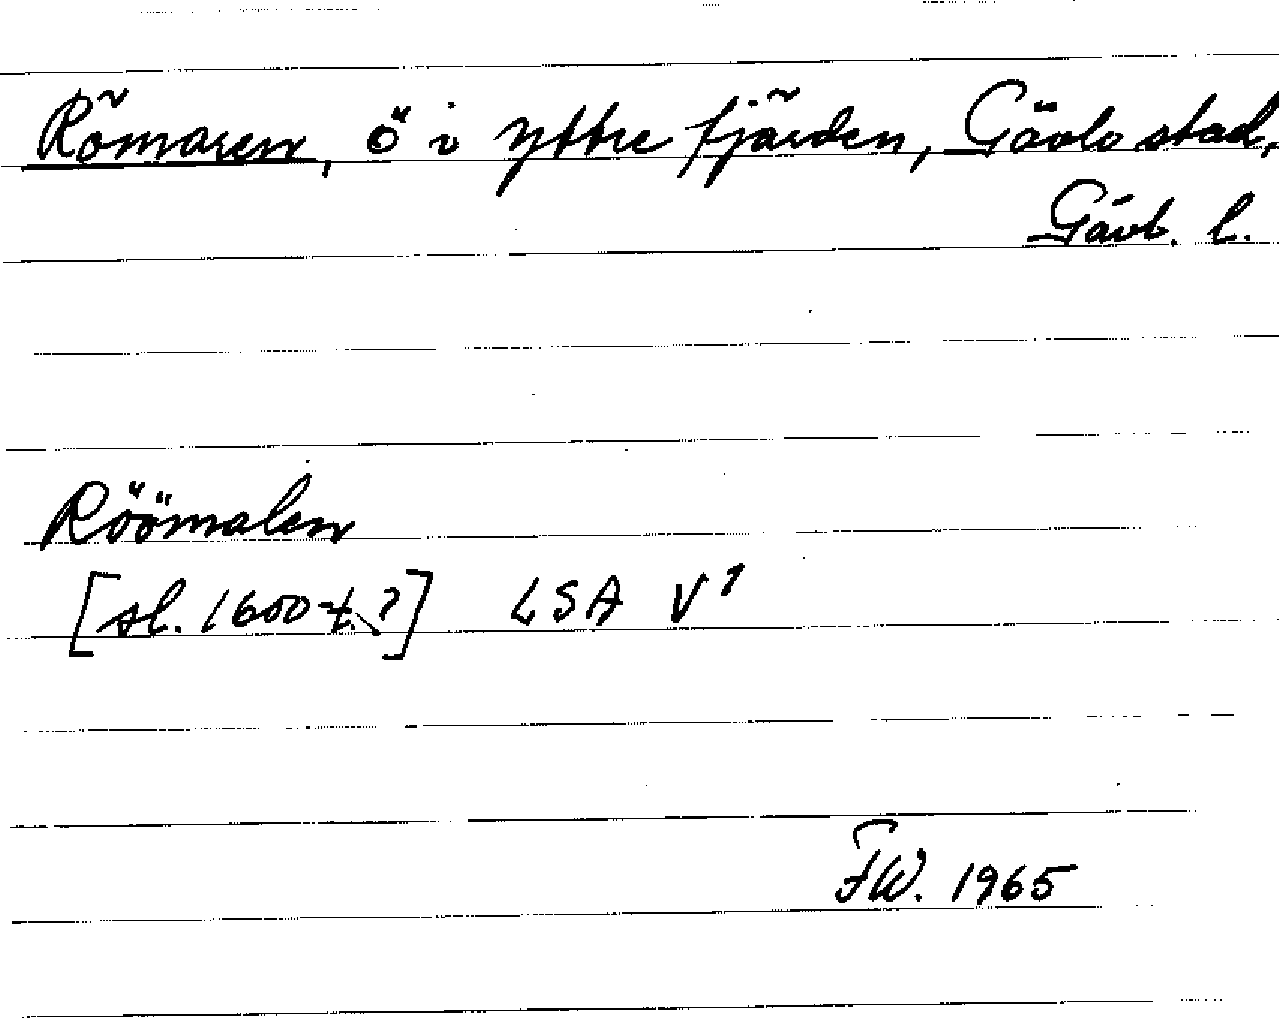 Römaren, ö i yttre fjärden, Gävle stad,
Gävl. l.
Röömalen
[sl. 1600-t.?] LSA V¹
FW. 1965